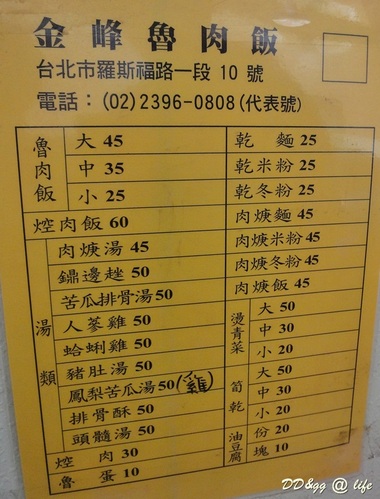 金峰魯肉飯
台北市羅斯福路一段 10 號
電話：(02)2396-0808(代表號)
魯肉飯
大 45
中 35
小 25
焢肉飯 60
湯類
肉焿湯 45
鼎邊趖 50
苦瓜排骨湯 50
人蔘雞 50
蛤蜊雞 50
豬肚湯 50
鳳梨苦瓜湯 50 (雞)
排骨酥 50
頭髓湯 50
焢肉 30
魯蛋 10
乾麵 25
乾米粉 25
乾冬粉 25
肉焿麵 45
肉焿米粉 45
肉焿冬粉 45
肉焿飯 45
燙青菜
大 50
中 30
小 20
筍乾
大 50
中 30
小 20
油豆腐
份 20
塊 10
DD&gg @ life